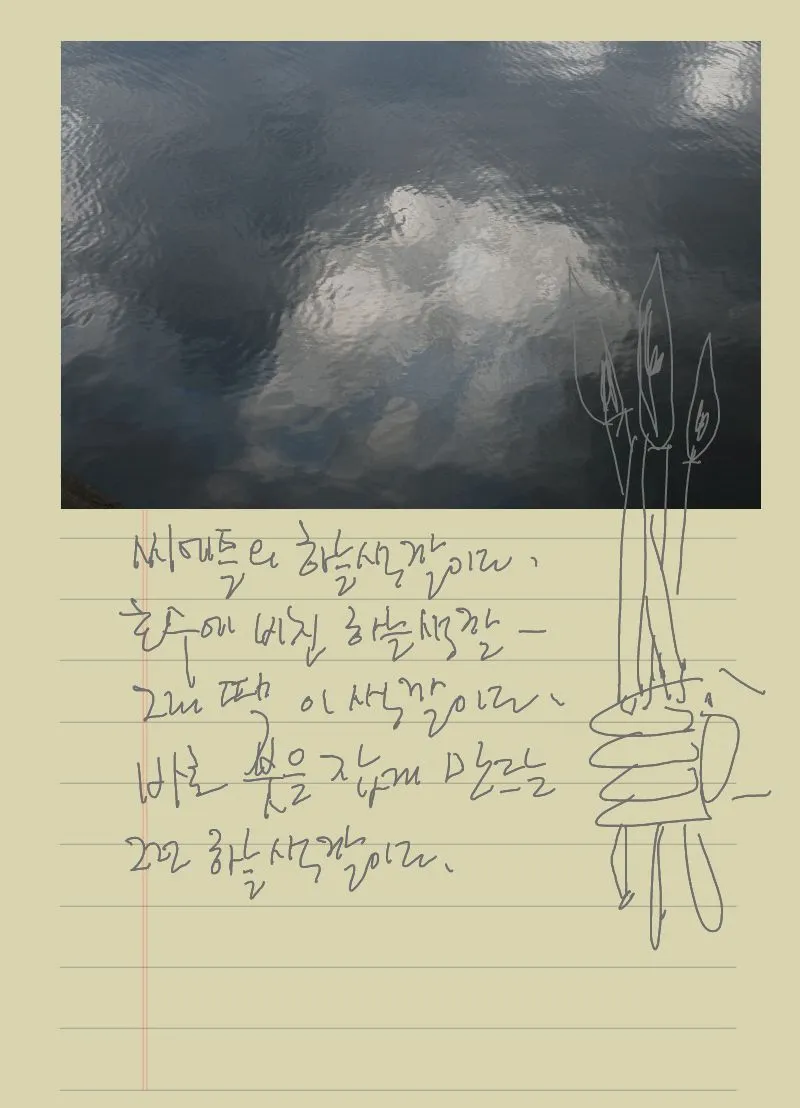 씨애틀의 하늘색깔이다.
호수에 비친 하늘색깔 -
그때 딱 이 색깔이다.
바로 붓을 잡게 만드는
그런 하늘색깔이다.